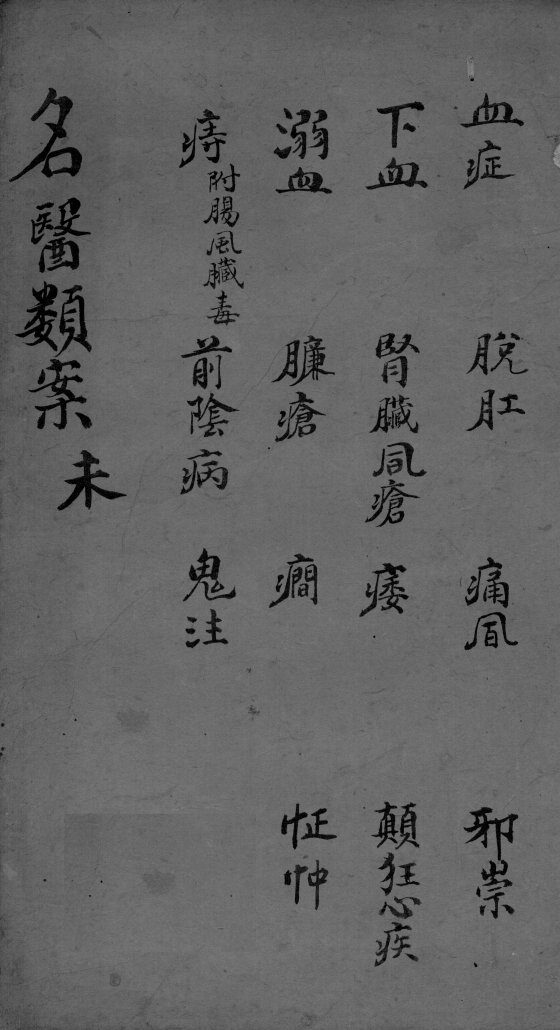 血症 脫肛 痛風 邪崇
下血 腎臟風瘡 痿 顛狂心疾
溺血 臁瘡 癎 怔忡
痔 附腸風臟毒 前陰病 鬼注
名醫類案 未